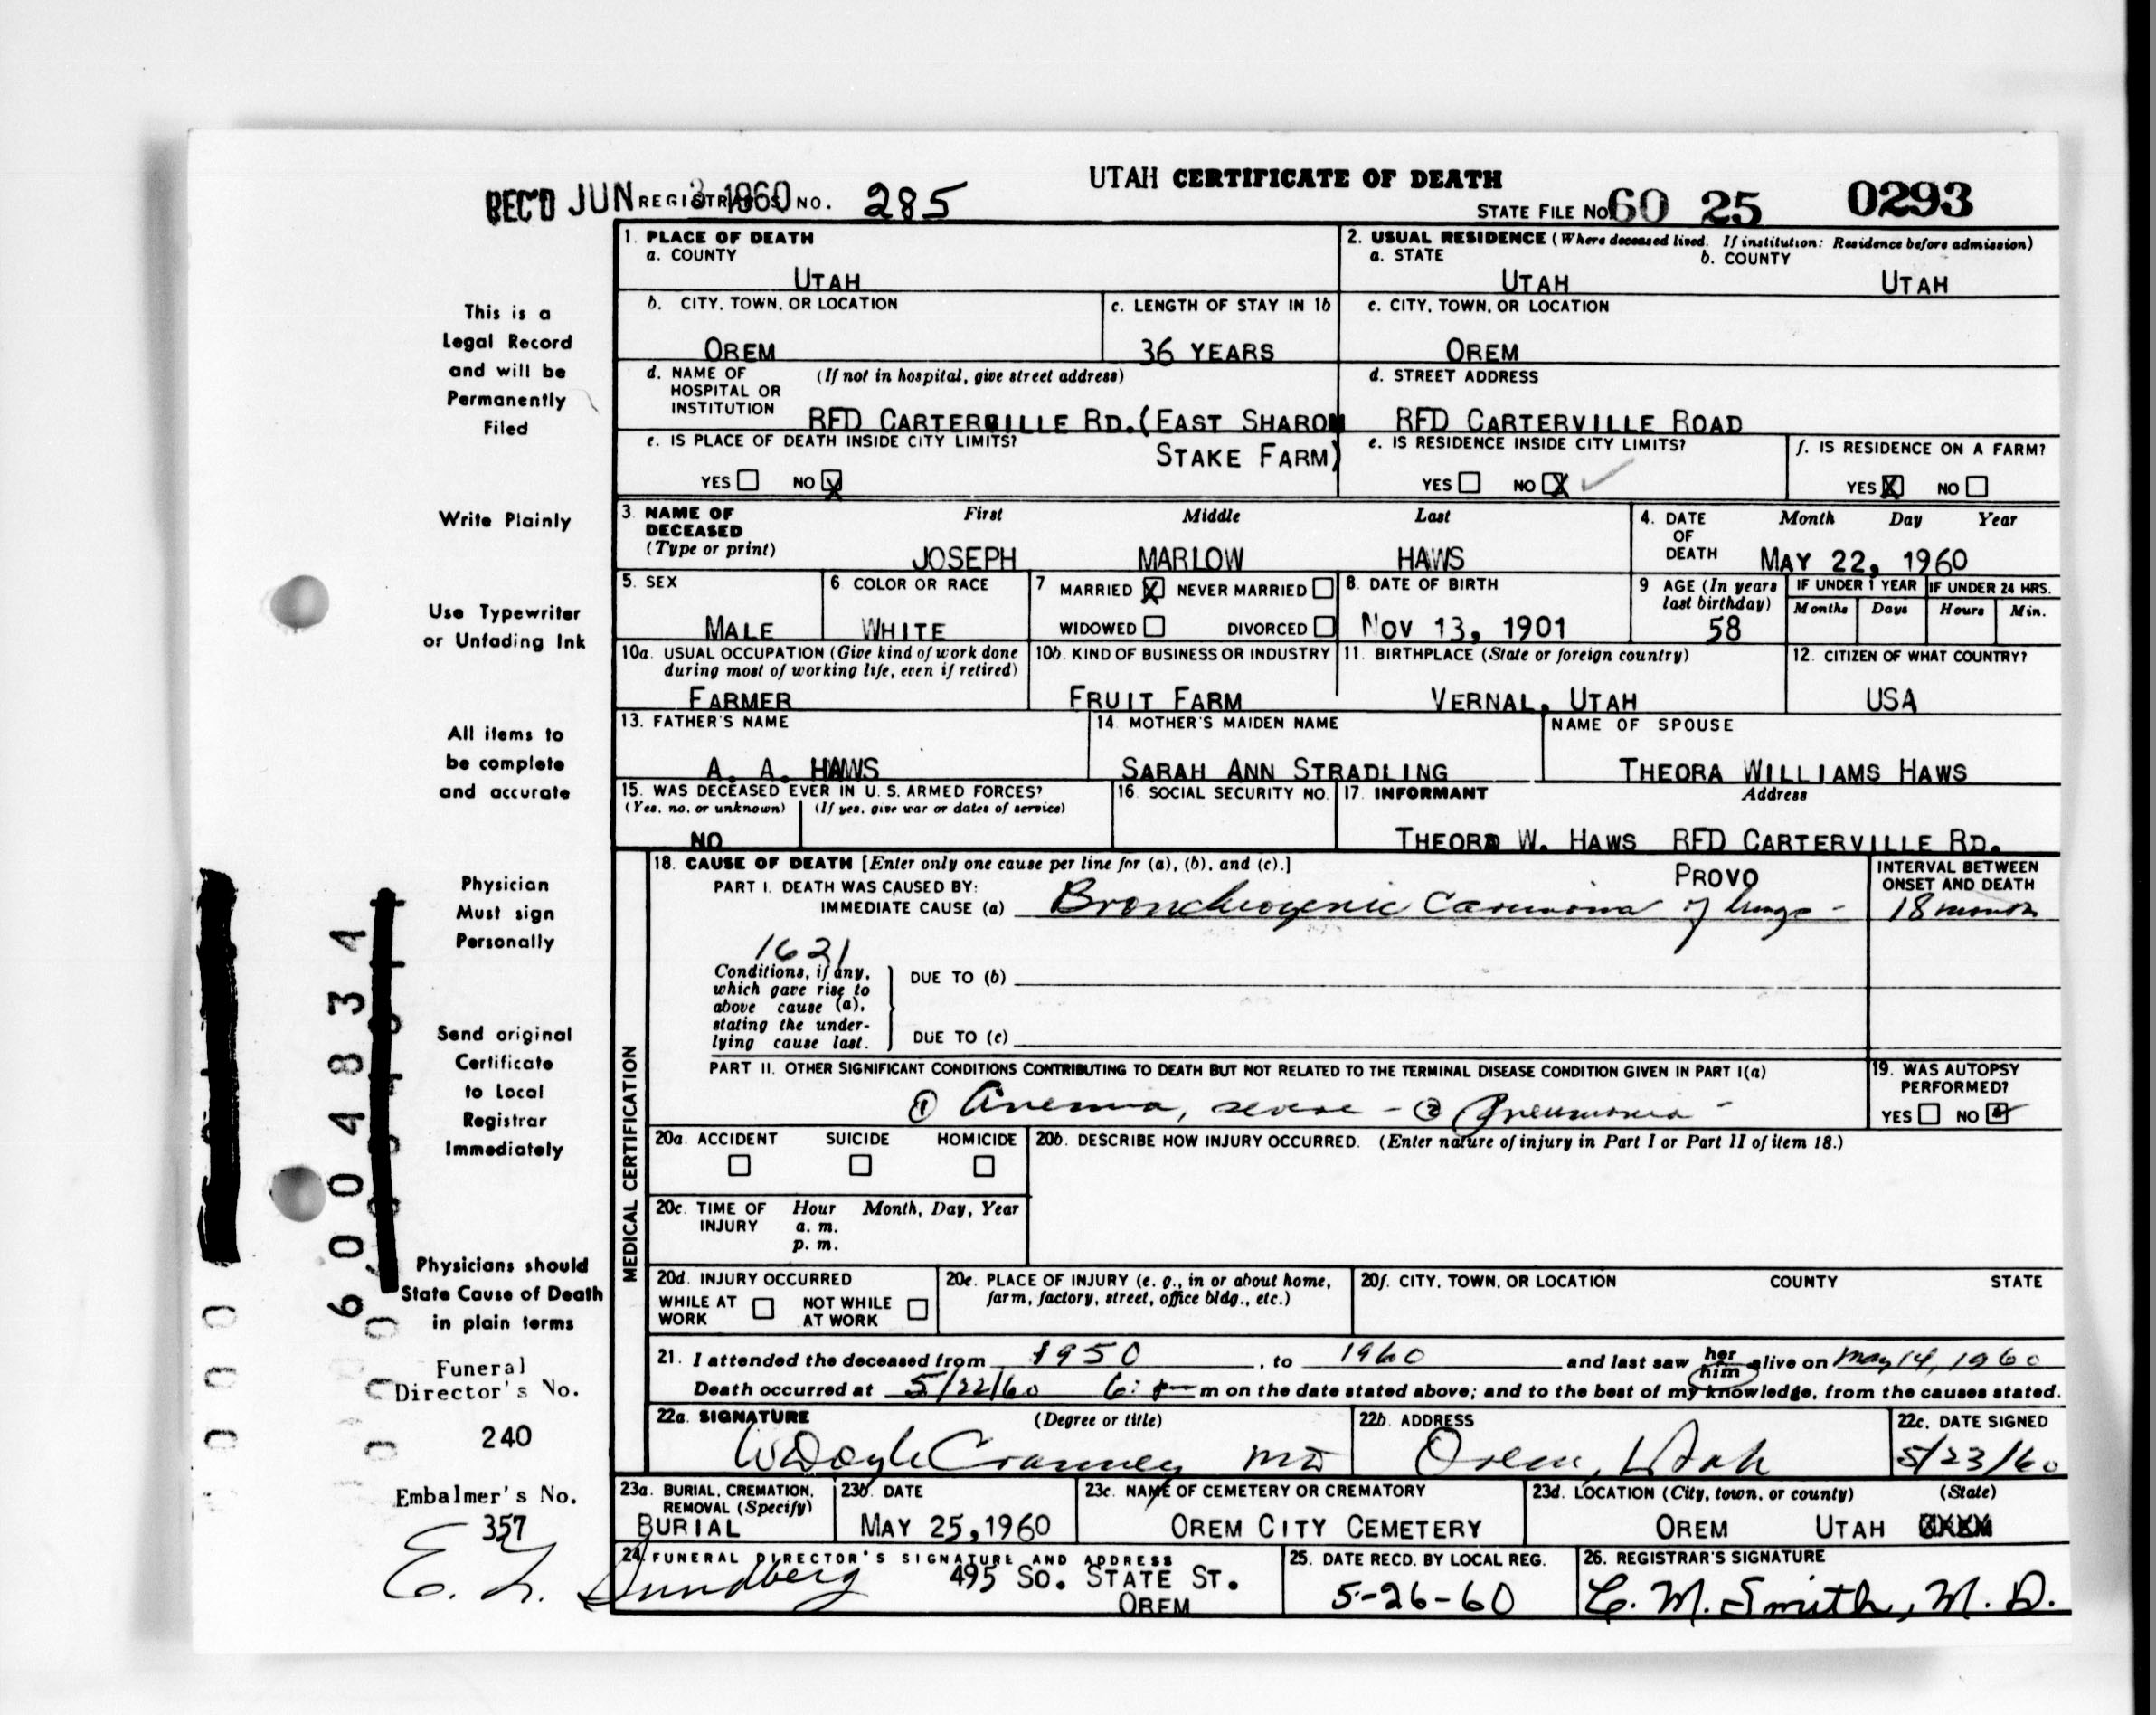 UTAH CERTIFICATE OF DEATH
REC'D JUN 3 1960 REGISTRAR'S NO. 285
STATE FILE NO. 60 25 0293
1. PLACE OF DEATH
a. COUNTY
UTAH
2. USUAL RESIDENCE (Where deceased lived. If institution: Residence before admission)
a. STATE b. COUNTY
UTAH UTAH
b. CITY, TOWN, OR LOCATION
OREM
c. LENGTH OF STAY IN 1b
36 YEARS
c. CITY, TOWN, OR LOCATION
OREM
d. NAME OF HOSPITAL OR INSTITUTION (If not in hospital, give street address)
RFD CARTERVILLE RD. (EAST SHARON
STAKE FARM)
d. STREET ADDRESS
RFD CARTERVILLE ROAD
e. IS PLACE OF DEATH INSIDE CITY LIMITS?
YES NO X
e. IS RESIDENCE INSIDE CITY LIMITS?
YES NO X
f. IS RESIDENCE ON A FARM?
YES X NO
3. NAME OF DECEASED (Type or print)
First Middle Last
JOSEPH MARLOW HAWS
4. DATE OF DEATH Month Day Year
MAY 22, 1960
5. SEX
MALE
6 COLOR OR RACE
WHITE
7 MARRIED X NEVER MARRIED
WIDOWED DIVORCED
8. DATE OF BIRTH
NOV 13, 1901
9 AGE (In years last birthday)
58
IF UNDER 1 YEAR IF UNDER 24 HRS.
Months Days Hours Min.
10a. USUAL OCCUPATION (Give kind of work done during most of working life, even if retired)
FARMER
10b. KIND OF BUSINESS OR INDUSTRY
FRUIT FARM
11. BIRTHPLACE (State or foreign country)
VERNAL, UTAH
12. CITIZEN OF WHAT COUNTRY?
USA
13. FATHER'S NAME
A. A. HAWS
14. MOTHER'S MAIDEN NAME
SARAH ANN STRADLING
NAME OF SPOUSE
THEORA WILLIAMS HAWS
15. WAS DECEASED EVER IN U. S. ARMED FORCES?
(Yes, no, or unknown) (If yes, give war or dates of service)
NO
16. SOCIAL SECURITY NO.
17. INFORMANT Address
THEORA W. HAWS RFD CARTERVILLE RD.
PROVO
MEDICAL CERTIFICATION
18. CAUSE OF DEATH [Enter only one cause per line for (a), (b), and (c).]
PART I. DEATH WAS CAUSED BY:
IMMEDIATE CAUSE (a) Bronchiogenic Carcinoma of lungs -
INTERVAL BETWEEN ONSET AND DEATH
18 months
1621
Conditions, if any,
which gave rise to
above cause (a),
stating the under-
lying cause last.
DUE TO (b)
DUE TO (c)
PART II. OTHER SIGNIFICANT CONDITIONS CONTRIBUTING TO DEATH BUT NOT RELATED TO THE TERMINAL DISEASE CONDITION GIVEN IN PART I(a)
① Anemia, severe - ② Pneumonia -
19. WAS AUTOPSY PERFORMED?
YES NO
20a. ACCIDENT SUICIDE HOMICIDE
20b. DESCRIBE HOW INJURY OCCURRED. (Enter nature of injury in Part I or Part II of item 18.)
20c. TIME OF INJURY Hour Month, Day, Year
a. m.
p. m.
20d. INJURY OCCURRED
WHILE AT WORK NOT WHILE AT WORK
20e. PLACE OF INJURY (e. g., in or about home, farm, factory, street, office bldg., etc.)
20f. CITY, TOWN, OR LOCATION COUNTY STATE
21. I attended the deceased from 1950, to 1960 and last saw her him alive on May 14, 1960
Death occurred at 5/22/60 6: m on the date stated above; and to the best of my knowledge, from the causes stated.
22a. SIGNATURE (Degree or title)
W Doyle Cranney MD
22b. ADDRESS
Orem, Utah
22c. DATE SIGNED
5/23/60
23a. BURIAL, CREMATION, REMOVAL (Specify)
BURIAL
23b. DATE
MAY 25, 1960
23c. NAME OF CEMETERY OR CREMATORY
OREM CITY CEMETERY
23d. LOCATION (City, town, or county) (State)
OREM UTAH
24. FUNERAL DIRECTOR'S SIGNATURE AND ADDRESS
E. L. Sundberg 495 SO. STATE ST.
OREM
25. DATE RECD. BY LOCAL REG.
5-26-60
26. REGISTRAR'S SIGNATURE
C. M. Smith, M. D.
This is a
Legal Record
and will be
Permanently
Filed
Write Plainly
Use Typewriter
or Unfading Ink
All items to
be complete
and accurate
Physician
Must sign
Personally
Send original
Certificate
to Local
Registrar
Immediately
Physicians should
State Cause of Death
in plain terms
Funeral
Director's No.
240
Embalmer's No.
357
6004834